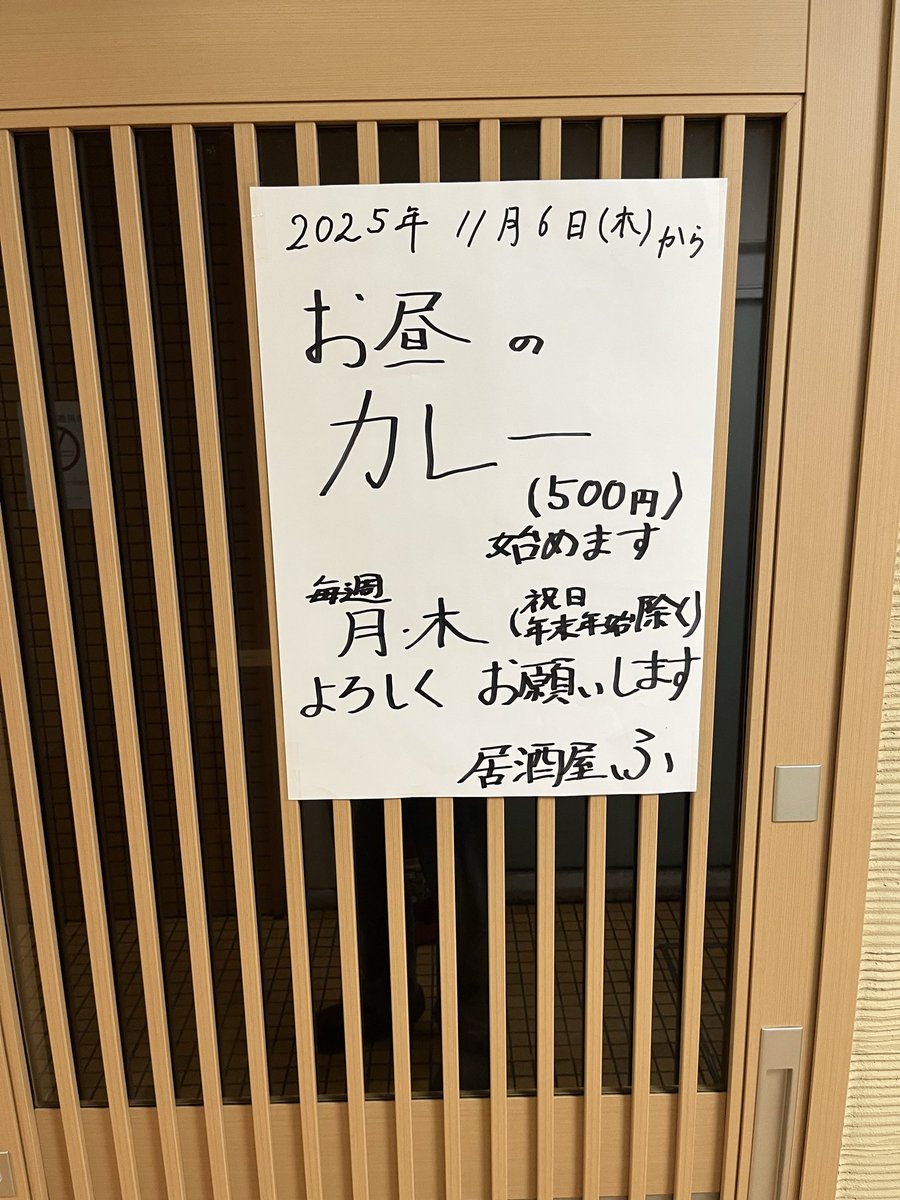 2025年 11月6日(木)から
お昼の
カレー
(500円)
始めます
毎週
月・木 (祝日
年末年始除く)
よろしく お願いします
居酒屋 ふ